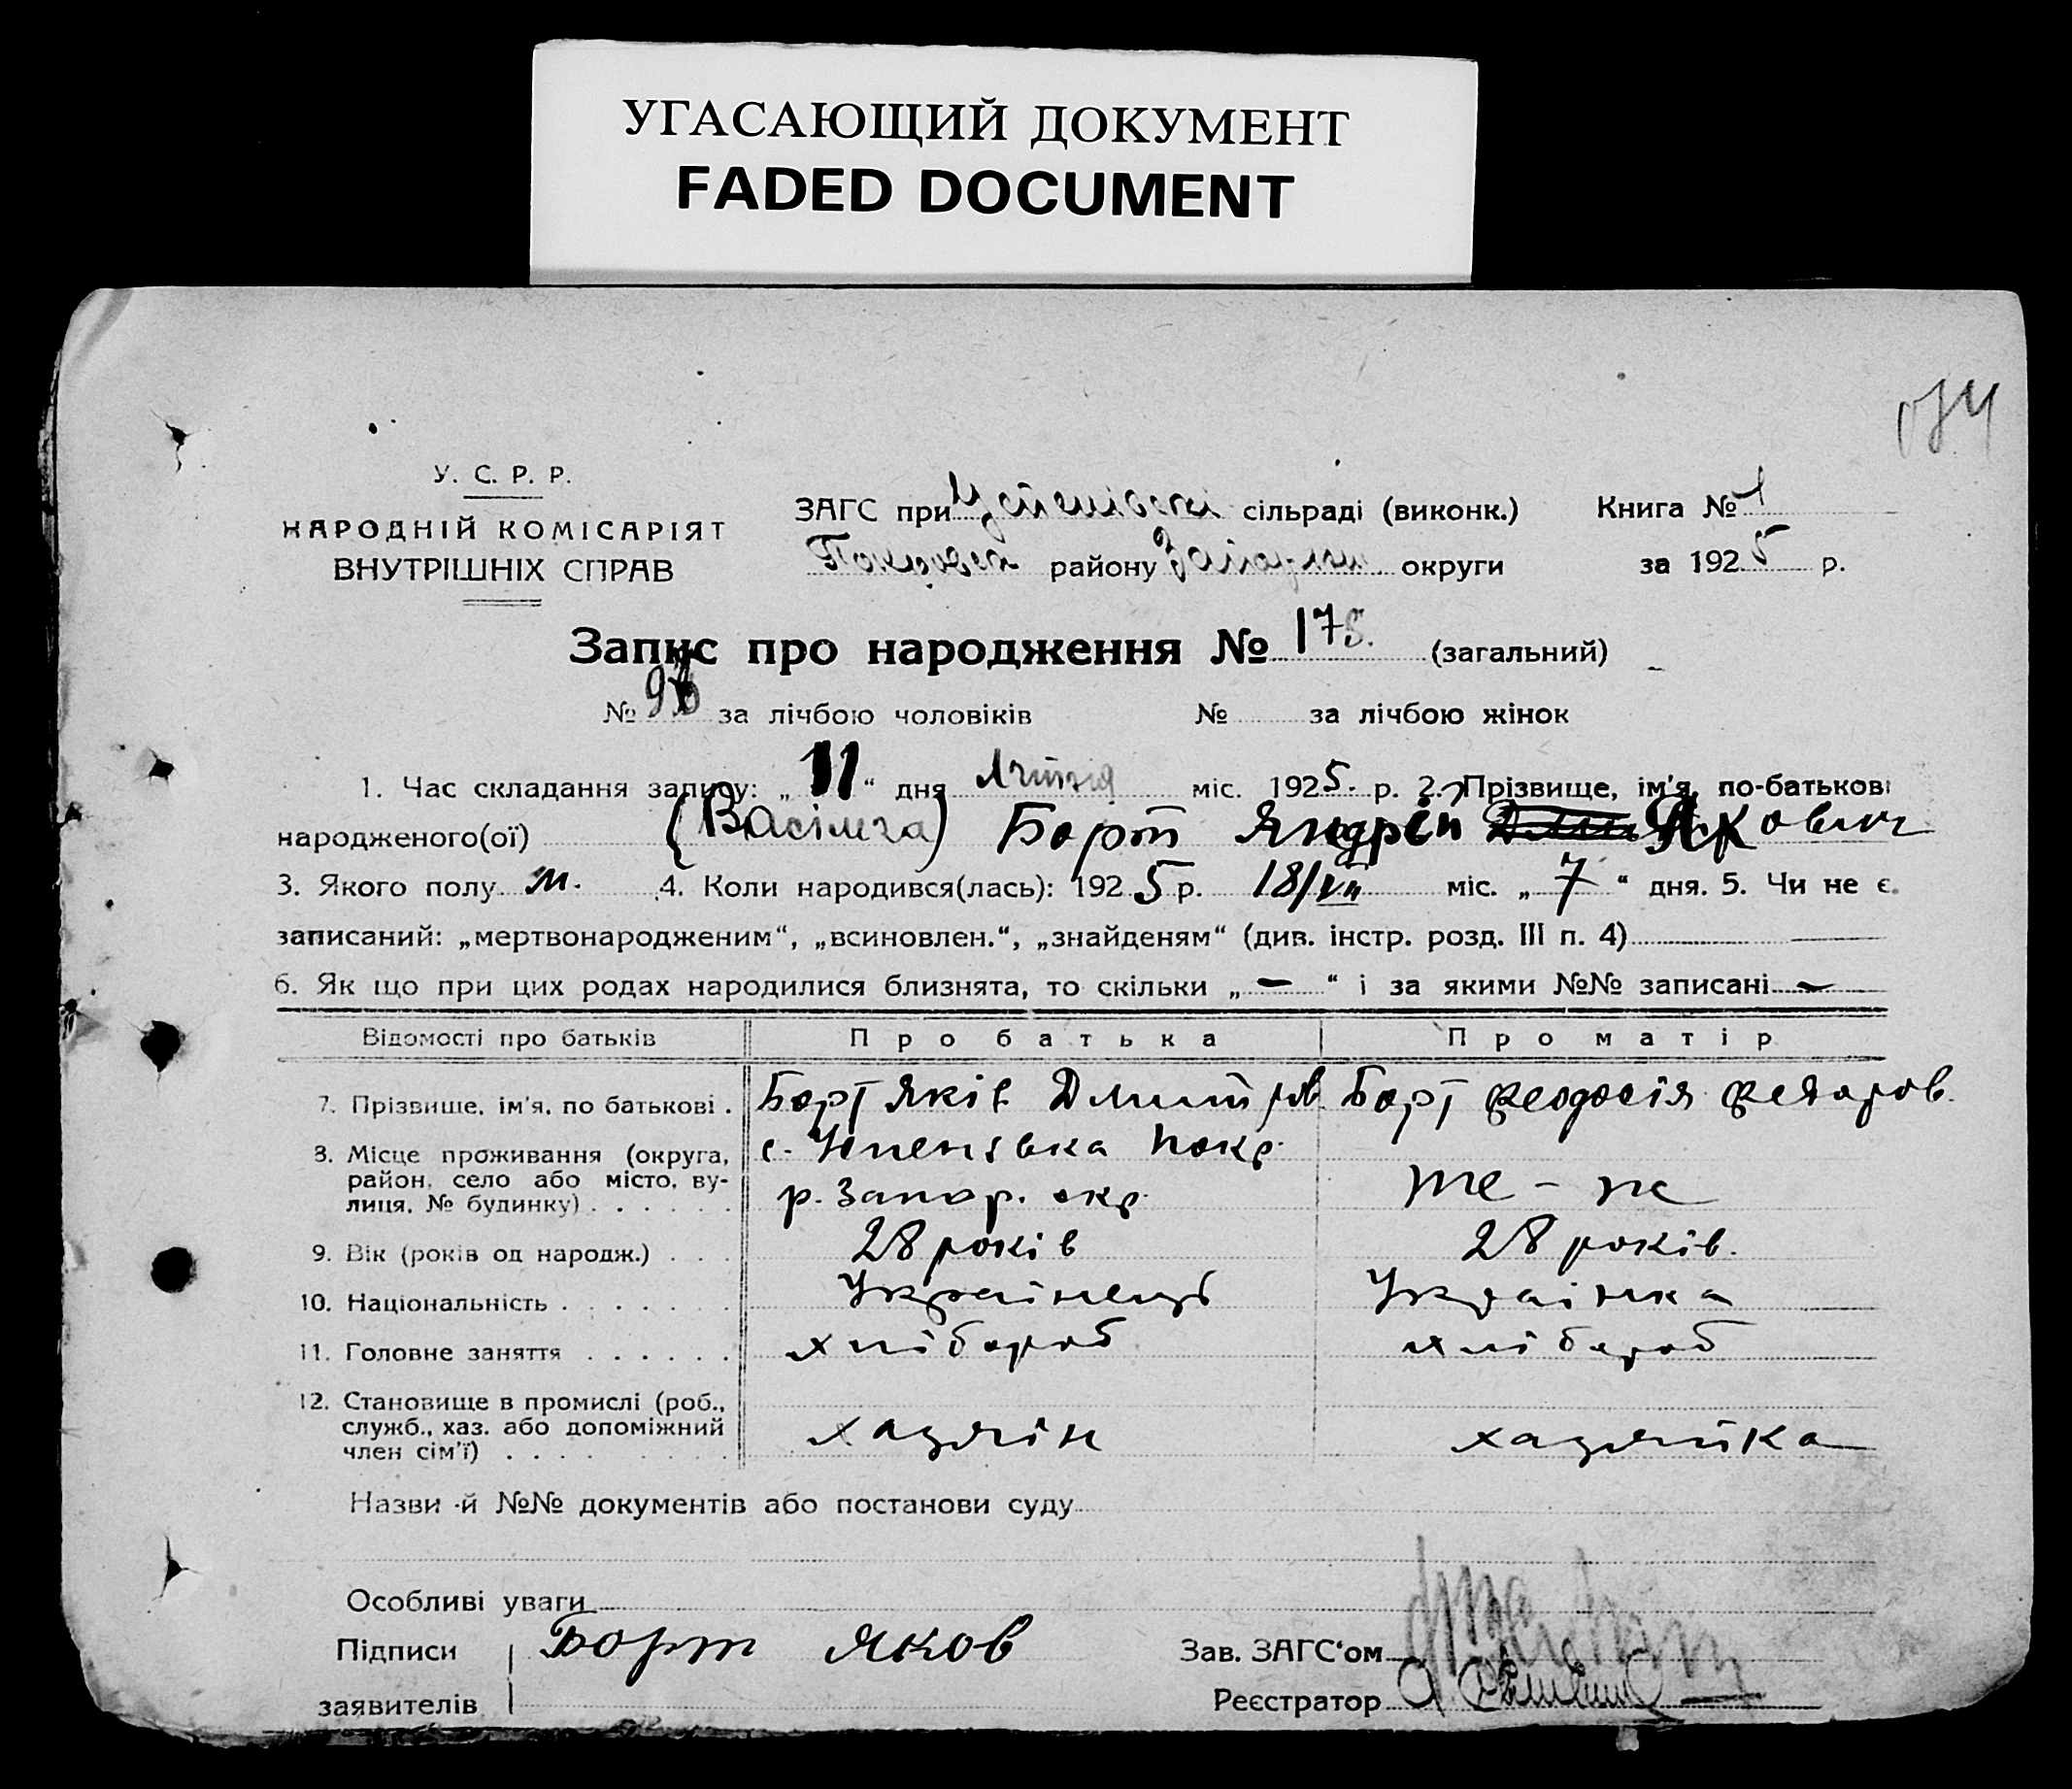 УГАСАЮЩИЙ ДОКУМЕНТ
FADED DOCUMENT
У. С. Р. Р.
НАРОДНІЙ КОМІСАРІЯТ
ВНУТРІШНІХ СПРАВ
ЗАГС при Успенівскі сільраді (виконк.)
району округи
Книга № 1
за 1925 р.
Запис про народження № 175. (загальний)
№ за лічбою чоловіків № за лічбою жінок
1. Час складання запису: „11“ дня міс. 1925. р. 2. Прізвище, ім'я, по-батькові
народженого(ої) Борт Яндрій Якович
3. Якого полу м. 4. Коли народився(лась): 1925 р. 18/VII міс. „7“ дня. 5. Чи не є
записаний: „мертвонародженим“, „всиновлен.“, „знайденям“ (див. інстр. розд. III п. 4)
6. Як що при цих родах народилися близнята, то скільки „—“ і за якими №№ записані —
Відомості про батьків Про батька Про матір
7. Прізвище, ім'я, по батькові . Борт Яків Дмитров. Борт Феодосія Федоров.
8. Місце проживання (округа, район, село або місто, вулиця, № будинку) . . . . . . с. Успенівка Покр.
р. Запор. окр. те-ж
9. Вік (років од народж.) . . . 28 років 28 років.
10. Національність . . . . . . . Українець Українка
11. Головне заняття . . . . . . хлібороб хлібороб
12. Становище в промислі (роб., служб., хаз. або допоміжний член сім'ї) . . . . хазяїн хазяйка
Назви й №№ документів або постанови суду
Особливі уваги
Підписи Борт Яков
заявителів
Зав. ЗАГС'ом
Реєстратор